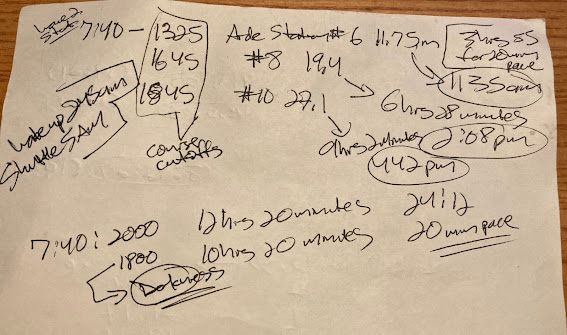 wave 2
starts 7:40 - 1325 Ade Station # 6 11.75m 3hrs 55
for 20min
pace
1645 #8 19,4 1135am
1845 #10 27.1 6 hrs 28 minutes
wake up 245am 2:08pm
Shuttle 5AM course
cutoffs 9hrs 2 minutes
442 pm
7:40 : 2000 12 hrs 20 minutes 24:12
1800 10hrs 20 minutes 20 min pace
Darkness